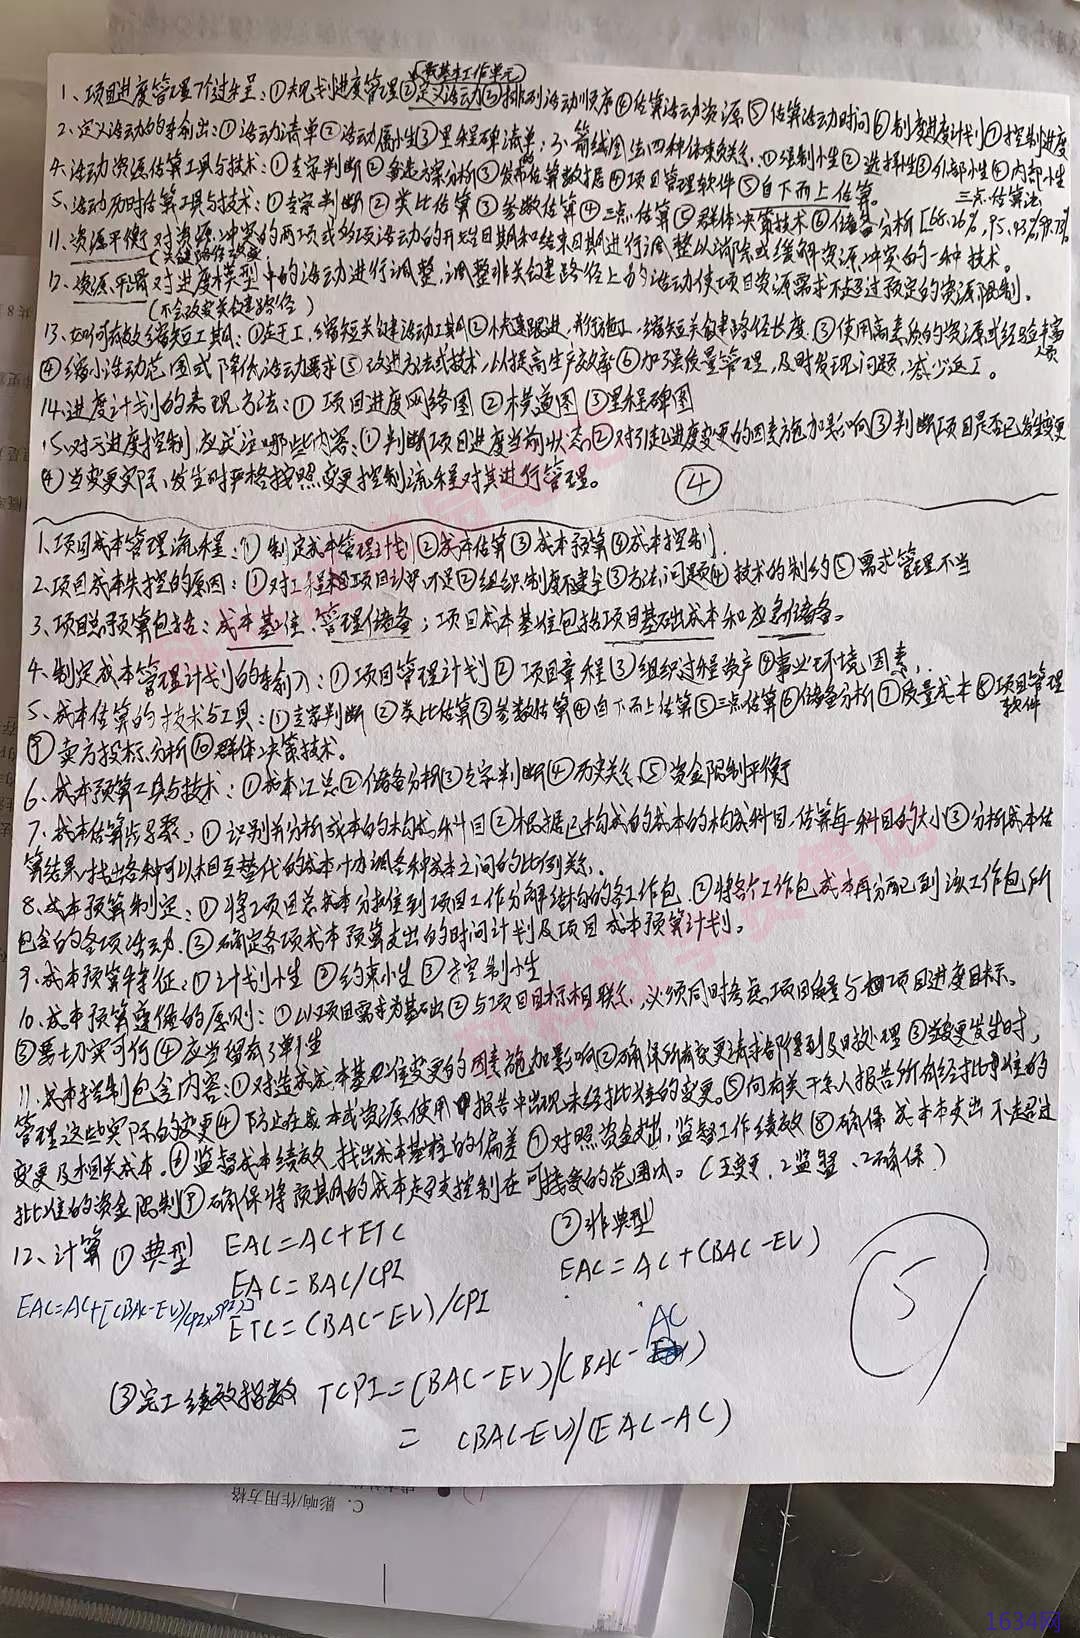 (最基本工作单元)
1、项目进度管理7个过程：①规划进度管理②定义活动③排列活动顺序④估算活动资源⑤估算活动时间⑥制定进度计划⑦控制进度
2、定义活动的输出：①活动清单②活动属性③里程碑清单；3、箭线图法四种依赖关系：①强制性②选择性③外部性④内部性
4、活动资源估算工具与技术：①专家判断②备选方案分析③发布估算数据④项目管理软件⑤自下而上估算。
三点估算法
5、活动历时估算工具与技术：①专家判断②类比估算③参数估算④三点估算⑤群体决策技术⑥储备分析[68.26%，95.93%，99.73%
11、资源平衡 对资源冲突的两项或多项活动的开始日期和结束日期进行调整以消除或缓解资源冲突的一种技术。
(关键路径改变)
12、资源平滑 对进度模型中的活动进行调整，调整非关键路径上的活动使项目资源需求不超过预定的资源限制。
(不会改变关键路径)
13、如何有效缩短工期：①赶工，缩短关键活动工期②快速跟进，并行施工，缩短关键路径长度③使用高素质的资源或经验丰富人员
④缩小活动范围或降低活动要求⑤改进方法或技术，以提高生产效率⑥加强质量管理，及时发现问题，减少返工。
14、进度计划的表现方法：①项目进度网络图②横道图③里程碑图
15、对于进度控制，应关注哪些内容：①判断项目进度当前状态②对引起进度变更的因素施加影响③判断项目是否已发生变更
④当变更实际发生时严格按照变更控制流程对其进行管理。 ④
1、项目成本管理流程：①制定成本管理计划②成本估算③成本预算④成本控制
2、项目成本失控的原因：①对工程项目认识不足②组织制度不健全③方法问题④技术的制约⑤需求管理不当
3、项目总预算包括：成本基准、管理储备；项目成本基准包括项目基础成本和应急储备。
4、制定成本管理计划的输入：①项目管理计划②项目章程③组织过程资产④事业环境因素
5、成本估算的技术与工具：①专家判断②类比估算③参数估算④自下而上估算⑤三点估算⑥储备分析⑦质量成本⑧项目管理软件
⑨卖方投标分析⑩群体决策技术。
6、成本预算工具与技术：①成本汇总②储备分析③专家判断④历史关系⑤资金限制平衡
7、成本估算步骤：①识别并分析成本的构成科目②根据已构成的成本的构成科目，估算每一科目的大小③分析成本估
算结果，找出各种可以相互替代的成本，协调各种成本之间的比例关系。
8、成本预算制定：①将项目总成本分摊到项目工作分解结构的各工作包②将各个工作包成本再分配到该工作包所
包含的各项活动③确定各项成本预算支出的时间计划及项目成本预算计划。
9、成本预算特征：①计划性②约束性③控制性
10、成本预算遵循的原则：①以项目需求为基础②与项目目标相联系，必须同时考虑项目质量与项目进度目标。
③要切实可行④应当留有弹性
11、成本控制包含内容：①对造成成本基准变更的因素施加影响②确保所有变更请求都得到及时处理③当变更发生时，
管理这些实际的变更④防止在成本或资源使用报告中出现未经批准的变更。⑤向有关干系人报告所有经批准的
变更及相关成本。⑥监督成本绩效，找出成本基准的偏差⑦对照资金支出，监督工作绩效⑧确保成本支出不超过
批准的资金限制⑨确保将预期的成本超支控制在可接受的范围内。(五变更、2监督、2确保)
12、计算 ①典型 EAC=AC+ETC ②非典型
EAC=BAC/CPI EAC=AC+(BAC-EV)
EAC=AC+[(BAC-EV)/CPI×SPI)] ETC=(BAC-EV)/CPI
⑤
③完工绩效指数 TCPI=(BAC-EV)/(BAC-AC)
=(BAC-EV)/(EAC-AC)
C. 影响/作用方格
1634网